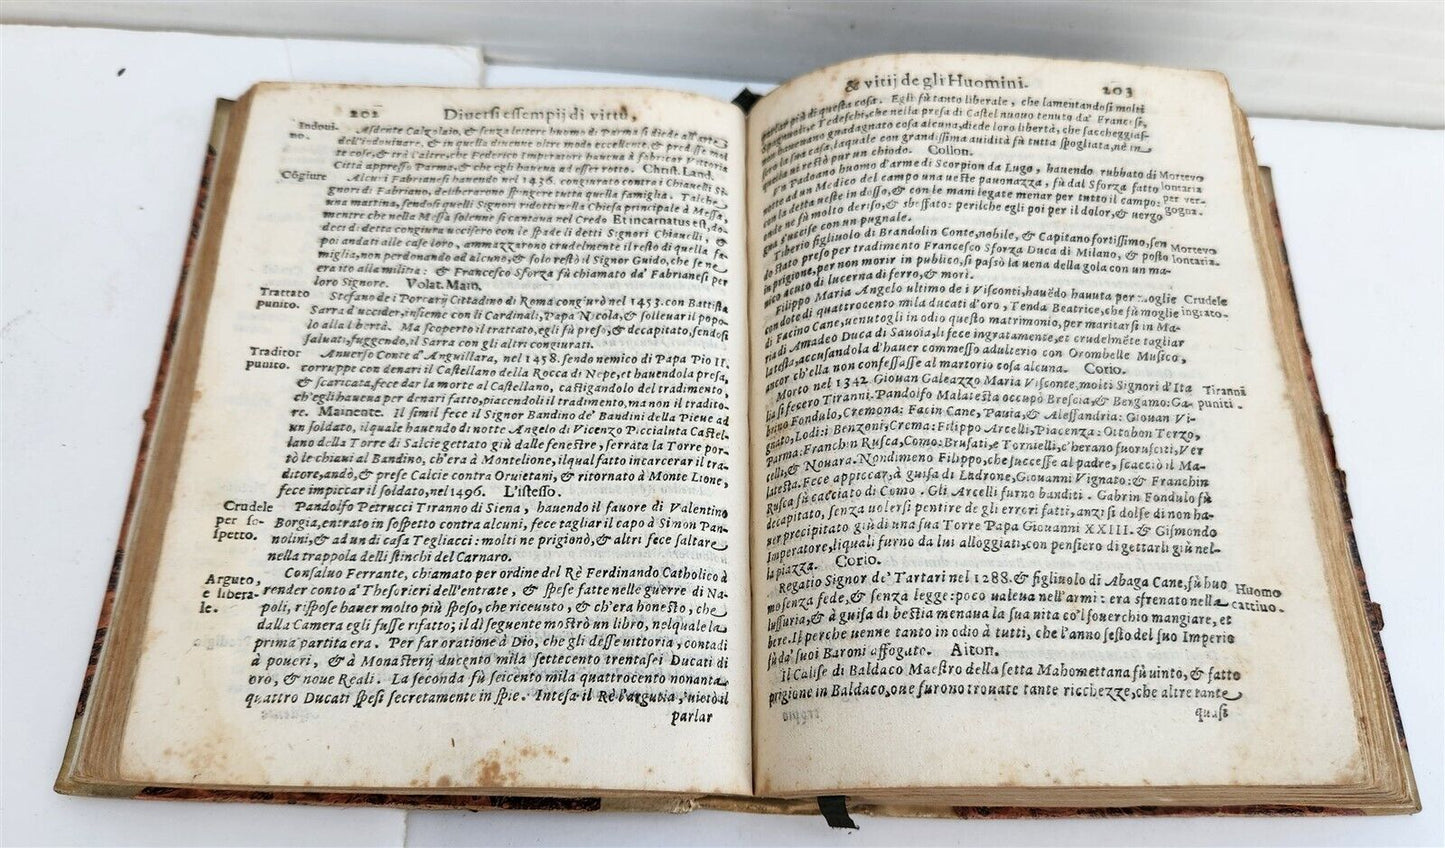 202 Diuersi essempij di virtù,
Indoui-
no.
Asdente Calzolaio, & senza lettere huomo di Parma si diede all'arte
dell'indouinare, & in quella diuenne oltre modo eccellente, & predisse mol
te cose, & trà l'altre, che Federico Imperatori haueua à fabricar Vittoria
Città appresso Parma, & che egli haueua ad esser rotto. Christ. Land.
Cōgiure
Alcuri Fabrianesi hauendo nel 1436. congiurato contra i Chiauelli Si-
gnori di Fabriano, deliberarono spingere tutta quella famiglia. Talche
vna martina, sendosi quelli Signori ridotti nella Chiesa principale à Messa,
mentre che nella Messa solenne si cantaua nel Credo Et incarnatus est, do-
deci di detta congiura vccisero con le spade li detti Signori Chiauelli, &
poi andati alle case loro, ammazzarono crudelmente il resto di quella fa-
miglia, non perdonando ad alcuno, & solo restò il Signor Guido, che se ne
era ito alla militia: & Francesco Sforza fù chiamato da' Fabrianesi per
loro Signore. Volat. Main.
Trattato
punito.
Stefano de i Porcarij Cittadino di Roma congiurò nel 1453. con Battista
Sarra d'vccider, insieme con li Cardinali, Papa Nicola, & solleuar il popo-
lo alla libertà. Ma scoperto il trattato, egli fù preso, & decapitato, sendosi
saluati, fuggendo, il Sarra con gli altri congiurati.
Traditor
punito.
Anuerso Conte d'Anguillara, nel 1458. sendo nemico di Papa Pio II.
corruppe con denari il Castellano della Rocca di Nepe, et hauendola presa,
& scaricata, fece dar la morte al Castellano, castigandolo del tradimento,
ch'egli haueua per denari fatto, piacendoli il tradimento, ma non il tradito-
re. Mainente. Il simil fece il Signor Bandino de' Bandini della Pieue ad
vn soldato, il quale hauendo di notte Angelo di Vicenzo Piccialuta Castel-
lano della Torre di Salcie gettato giù dalle fenestre, serrata la Torre por-
tò le chiaui al Bandino, ch'era à Montelione, il qual fatto incarcerar il tra-
ditore, andò, & prese Calcie contra Oruietani, & ritornato à Monte Lione,
fece impiccar il soldato, nel 1496. L'istesso.
Crudele
per so-
spetto.
Pandolfo Petrucci Tiranno di Siena, hauendo il fauore di Valentino
Borgia, entrato in sospetto contra alcuni, fece tagliar il capo à Simon Pan-
nolini, & ad vn di casa Tegliacci: molti ne prigionò, & altri fece saltare
nella trappola delli stinchi del Carnaro.
Arguto,
e libera-
le.
Consaluo Ferrante, chiamato per ordine del Rè Ferdinando Catholico à
render conto à Thesorieri dell'entrate, & spese fatte nelle guerre di Na-
poli, rispose hauer molto più speso, che riceuuto, & ch'era honesto, che
dalla Camera egli fusse rifatto; il dì seguente mostrò un libro, nel quale la
prima partita era. Per far oratione à Dio, che gli desse uittoria, contadi
à poueri, & à Monasterij ducento mila settecento trentasei Ducati di
oro, & noue Reali. La seconda fù seicento mila quattrocento nonanta
quattro Ducati spesi secretamente in spie. Intesa il Rè l'argutia, uietò il
parlar
& vitij de gli Huomini. 203
parlar più di questa cosa. Egli fù tanto liberale, che lamentandosi molti
Spagnuoli, e Tedeschi, che nella presa di Castel nuovo tenuto da' Francesi,
non haueano guadagnato cosa alcuna, diede loro libertà, che saccheggiaf-
sero la sua casa, laquale con grandissima auidità fù tutta spogliata, nè in
quella ui restò pur un chiodo. Collon.
Vn Padoano huomo d'arme di Scorpion da Lugo, hauendo rubbato di
notte ad vn Medico del campo una ueste pauonazza, fù dal Sforza fatto
con la detta ueste in dosso, & con le mani legate menar per tutto il campo:
onde ne fù molto deriso, & sbeffato: perilche egli poi per il dolor, & uergo
gna s'uccise con un pugnale.
Mortevo
lontaria
per ver-
gogna.
Tiberio figliuolo di Brandolin Conte, nobile, & Capitano fortissimo, sen
do stato preso per tradimento Francesco Sforza Duca di Milano, & posto
in prigione, per non morir in publico, si passò la uena della gola con un ma-
nico acuto di lucerna di ferro, & morì.
Mortevo
lontaria.
Filippo Maria Angelo ultimo de i Visconti, hauēdo hauuta per moglie
con dote di quattrocento mila ducati d'oro, Tenda Beatrice, che fù moglie
di Facino Cane, uenutogli in odio questo matrimonio, per maritarsi in Ma-
ria di Amadeo Duca di Sauoia, li fece ingratamente, et crudelmēte tagliar
la testa, accusandola d'hauer commesso adulterio con Orombelle Musico,
ancor ch'ella non confessasse al martorio cosa alcuna. Corio.
Crudele
ingrato.
Morto nel 1342 Giouan Galeazzo Maria Visconte, molti Signori d'Ita
lia si fecero Tiranni. Pandolfo Malatesta occupò Brescia, & Bergamo: Ga-
brino Fondulo, Cremona: Facin Cane, Pauia, & Alessandria: Giouan Vi-
gnato, Lodi: i Benzoni, Crema: Filippo Arcelli, Piacenza: Ottobon Terzo,
Parma: Franchin Rusca, Como: Brusati, e Tornielli, c'herano fuorusciti, Ver
celli, & Nouara. Nondimeno Filippo, che successe al padre, scacciò il Ma-
latesta. Fece appiccar, à guisa di Ladrone, Giouanni Vignato: & Franchin
Rusca fù cacciato di Como. Gli Arcelli furno banditi. Gabrin Fondulo fù
decapitato, senza uolersi pentire de gli errori fatti, anzi si dolse di non ha-
uer precipitato giù di una sua Torre Papa Giouanni XXIII. & Gismondo
Imperatore, li quali furno da lui alloggiati, con pensiero di gettarli giù nel-
la piazza. Corio.
Tirannā
puniti.
Regatio Signor de' Tartari nel 1288. & figliuolo di Abaga Cane, fù huo
mo senza fede, & senza legge: poco ualeua nell'armi: era sfrenato nella
lussuria, & à guisa di bestia menaua la sua uita co'l souerchio mangiare, et
bere. Il perche uenne tanto in odio à tutti, che l'anno sesto del suo Imperio
fù da' suoi Baroni affogato. Aiton.
Huomo
cattiuo.
Il Calife di Baldaco Maestro della setta Mahomettana fù uinto, & fatto
prigione in Baldaco, oue furono trouate tante ricchezze, che altre tante
quasi